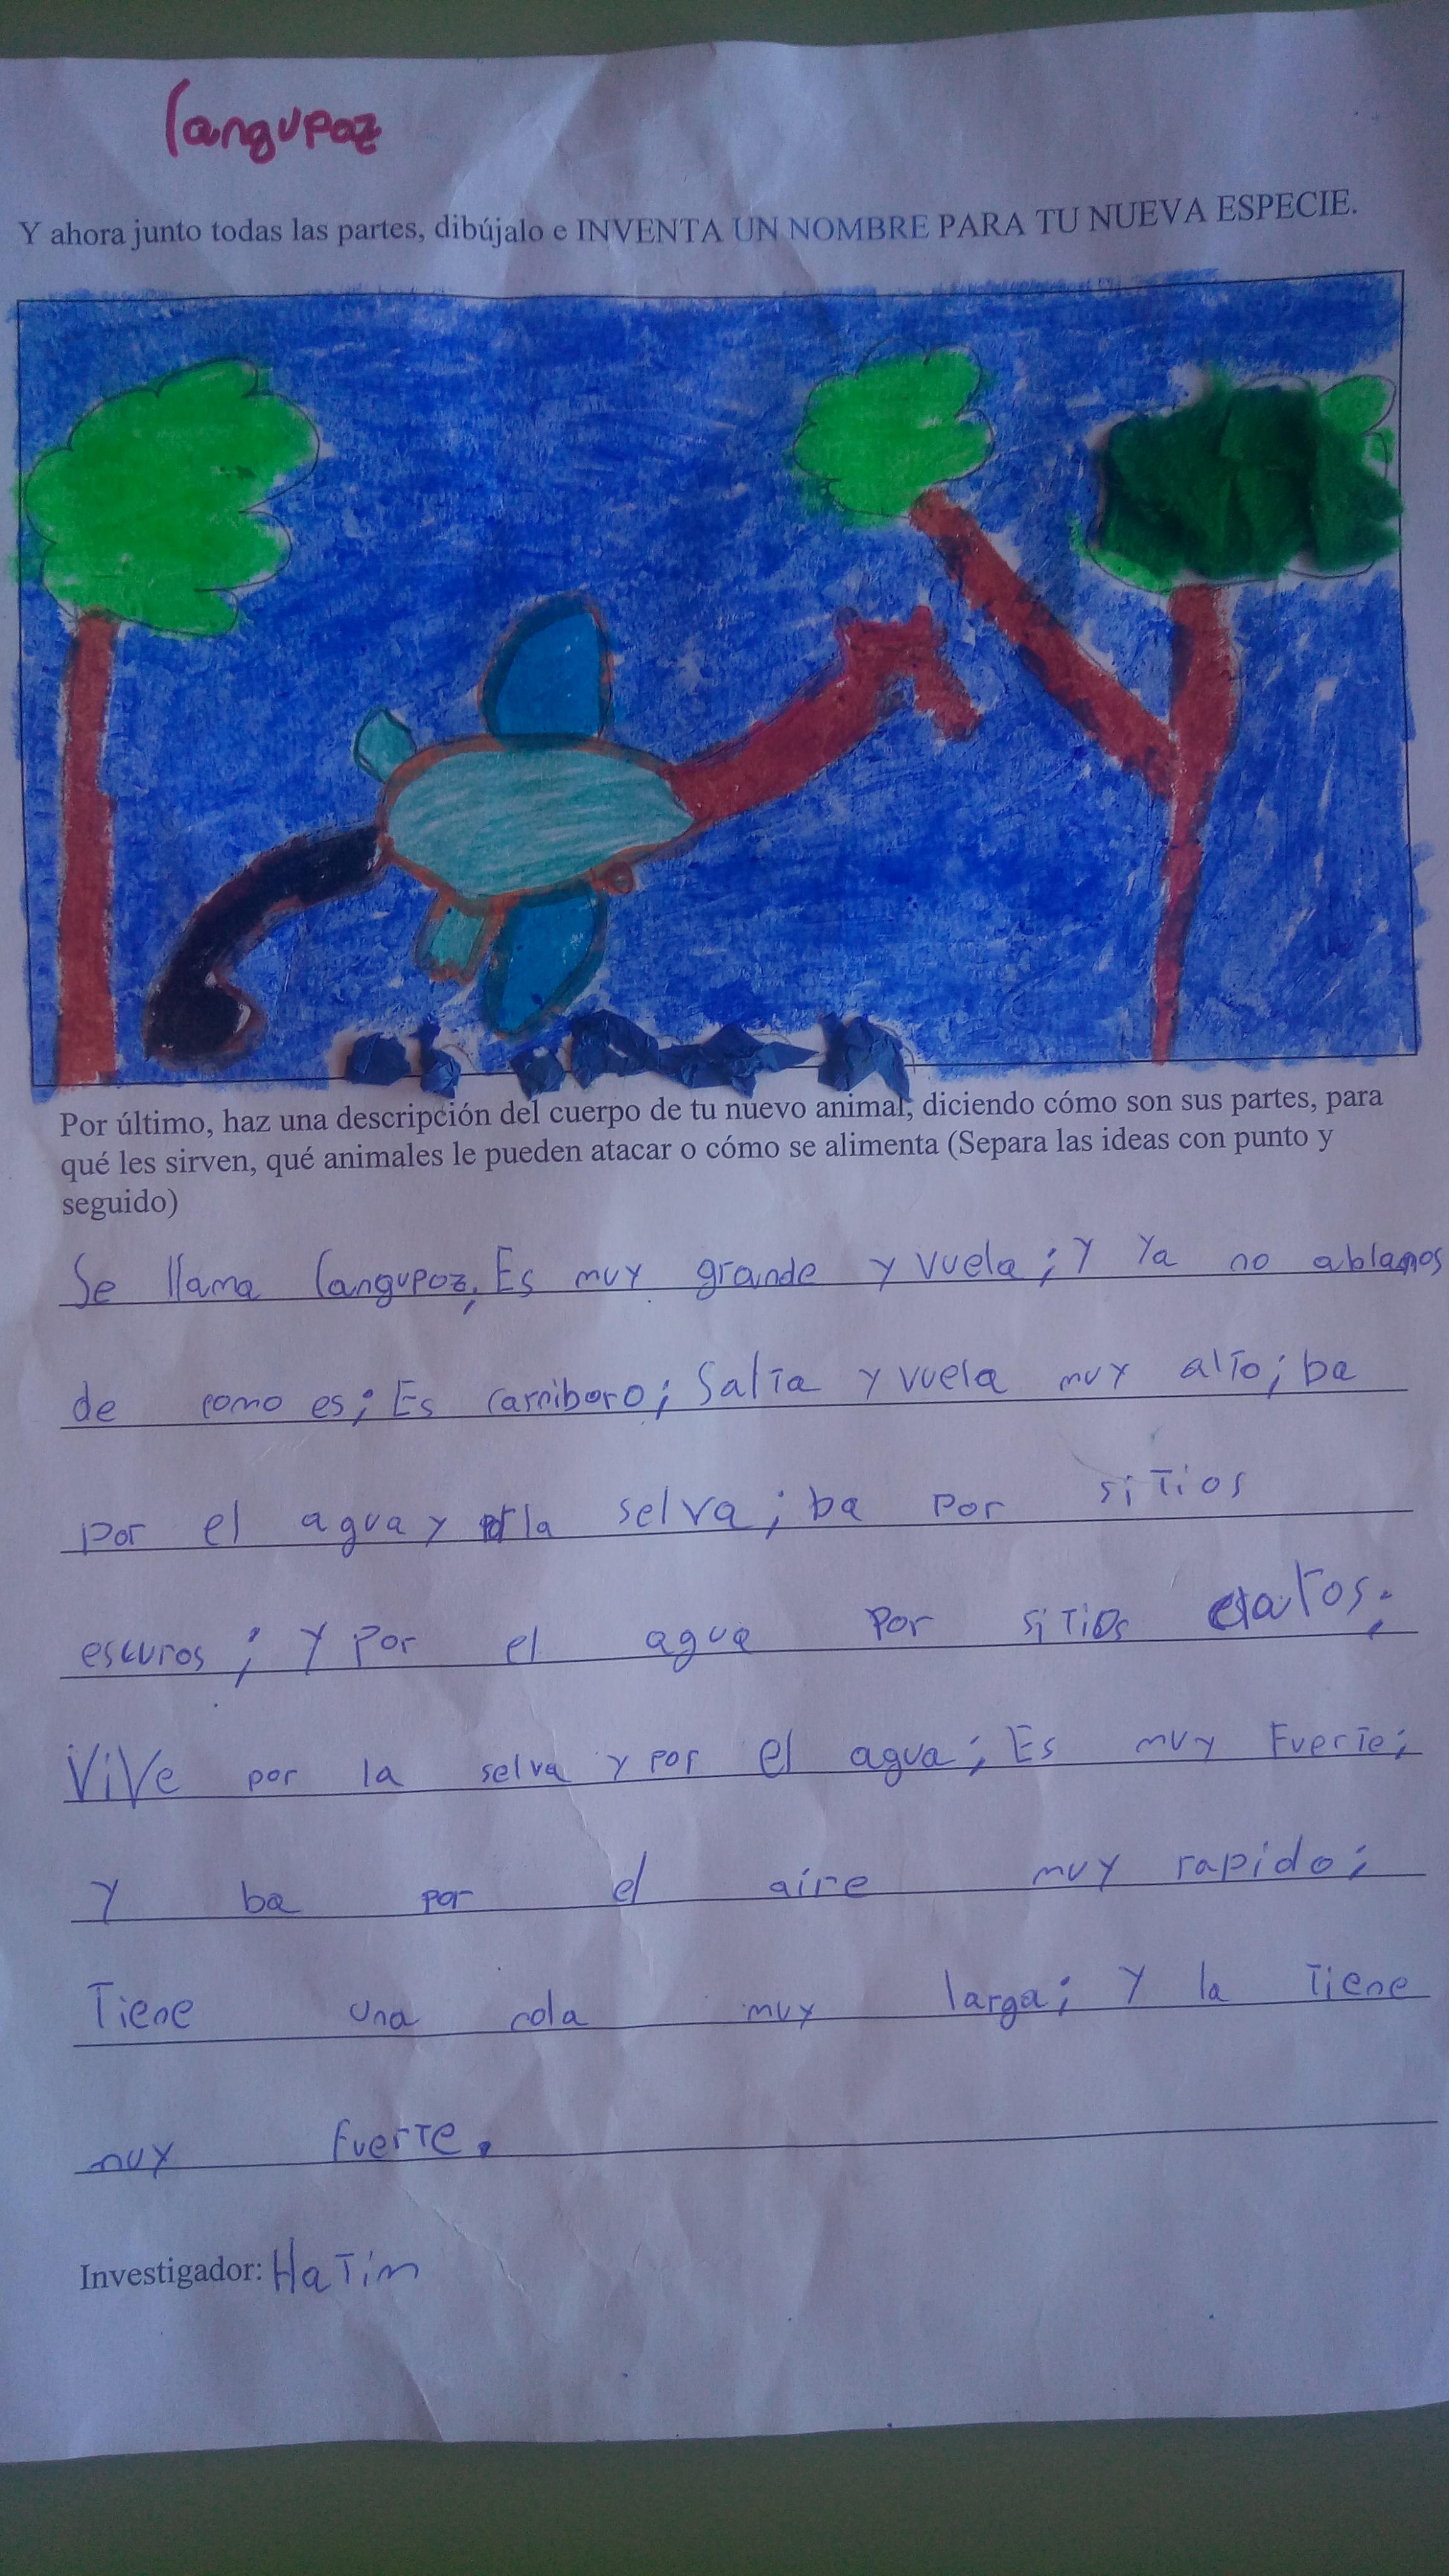 langupoz
Y ahora junto todas las partes, dibújalo e INVENTA UN NOMBRE PARA TU NUEVA ESPECIE.
Por último, haz una descripción del cuerpo de tu nuevo animal, diciendo cómo son sus partes, para
qué les sirven, qué animales le pueden atacar o cómo se alimenta (Separa las ideas con punto y
seguido)
Se llama langupoz; Es muy grande y vuela; y Ya no ablamos
de como es; Es carniboro; Salta y vuela muy alto; ba
por el agua y por la selva; ba por sitios
escuros; y por el agua por sitios claros;
Vive por la selva y por el agua; Es muy fuerte;
Y ba por el aire muy rapido;
Tiene una cola muy larga; Y la tiene
muy fuerte.
Investigador: Hatim